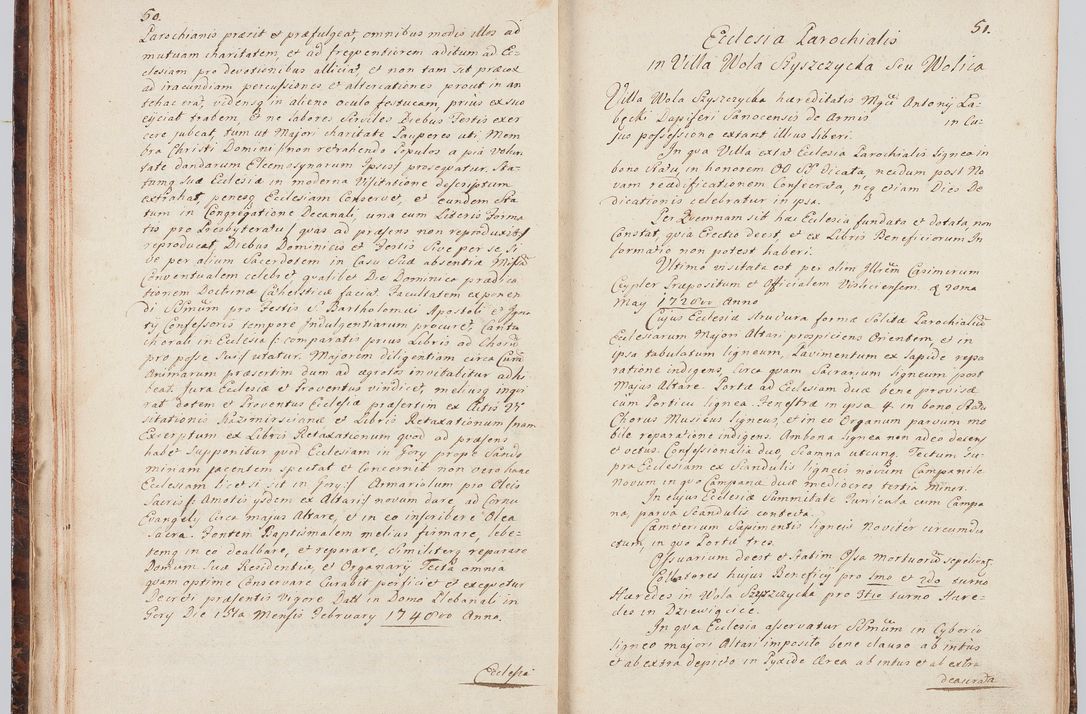 50.
Parochianis præcit et præfulgeat, omnibus modis illos ad
mutuam charitatem, et ad frequentiorem aditum ad Ec-
clesiam pro devotionibus alliciat, et non tam sit præcox
ad iracundiam percussiones et altercationes prout in an
tehac erat, videnss in alieno oculo festucam, prius ex suo
ejiciat trabem, et ne labores serviles Diebus Festis exer
cere jubeat, tum ut Majori charitate Pauperes uti, Mem
bra Christi Domini /:non retrahendo Populos a pia volun
tate dandarum Eleemosynarum Ipsis:/ prosequatur. Sta-
tumq suæ Ecclesiæ in moderna Visitatione descriptum
extrahat, penesq Ecclesiam Conservet, et eundem Sta
tum in Congregatione Decanali, una cum Literis Forma
tis pro Presbyteratu /:quas ad præsens non reproduxit:/
reproducat, Diebus Dominicis et Festis Sive per se, Si
ve per alium Sacerdotem in Casu Suæ absentiæ Missā
Conventualem celebret, qualibet Die Dominico prædica
tionem Doctrinæ Cathelsticæ faciat. Facultatem exponen
di SSmūm pro Festis S. Bartholomæi Apostoli et Igna
tij Confessoris tempore Indulgentiarum procuret, Cantu
chorali in Ecclesia /:comparatis prius Libris ad Chorū
pro posse suis:/ utatur. Majorem diligentiam circa Curā
Animarum præsertim dum ad ægrotos invitabitur adhi
beat. Jura Ecclesiæ et Proventus vindicet, meliusq inqui
rat dotem et Proventus Ecclesiæ præsertim ex Actis Vi
sitationis Kazimirscianæ et Libris Retaxationum /:nam
Excerptum ex Libris Retaxationum quod ad præsens
habet Supponitur quod Ecclesiam in Gory prope Sando
miriam jacentem spectat et Concernit non vero hanc
Ecclesiam licet si sit in Gory:/ Armariolum pro Oleis
Sacris /:Amotis ysdem ex Altari:/ novum dare, ad Cornu
Evangely Circa majus Altare, et in eo inscribere Olea
Sacra. Fontem Baptismalem melius firmare, lebe-
temq in eo dealbare, et reparare, similiterq reparare
Domum suæ Residentiæ, et Organary Tecta omnia
quam optime Conservare Curabit perficiet et exequetur
Decreti præsentis Vigore Datt in Domo Plebanali in
Gory Die 15ta Mensis February 1740vo Anno.
Ecclesia
51.
Ecclesia Parochialis
in Villa Wola Szyszczycka Seu Wolica
Villa Wola Szyszczycka hæreditatis Mgci Antonij Ła-
bęcki Dapiferi Sanocensis de Armis in Cu-
jus possessione extant illius liberi.
In qua Villa extat Ecclesia Parochialis lignea in
bono statu, in honorem OO SS Dicata, necdum post No
vam reædificationem Consecrata, neq etiam Dies De
dicationis celebratur in ipsa.
Per Quemnam sit hæc Ecclesia fundata et dotata, non
Constat, quia Erectio deest, et ex Libris Beneficiorum In
formatio non potest haberi.
Ultimo visitata est per olim Illrēm Casimirum
Czypler Præpositum et Officialem Visliciensem. A 2oma
May 1728vo Anno
Cujus Ecclesiæ structura formæ Solitæ Parochialiū
Ecclesiarum Majori Altari prospiciens Orientem, et in
ipsa tabulatum ligneum, Pavimentum ex lapide repa
ratione indigens, Circa quam Sacrarium ligneum post
Majus Altare. Portæ ad Ecclesiam duæ bene provisæ
cum Porticu lignea. Fenestræ in ipsa 4. in bono statu
Chorus Musicus ligneus, et in eo Organum parvum mo
bile reparatione indigens. Ambona lignea non adeo decens
et vetus. Confessionalia duo, Scamna utcunq. Tectum su-
pra Ecclesiam ex Scandulis ligneis novum Campanile
Novum in quo Campanæ duæ mediocres tertia Minor.
In ejus Ecclesiæ Summitate Tunicula cum Campa
na, parva Scandulis contecta.
Cæmeterium Sepimentis ligneis Noviter circumdu
ctum, in quo Portæ tres.
Ossuarium deest et statim Ossa mortuorū sepeliunt.
Collatores hujus Beneficij pro 1mo et 2do turno
Hæredes in Wola Szyszczycka pro 3tio turno Hære-
des in Dziewięcice.
In qua Ecclesia asservatur SSmūm in Cyborio
ligneo majori Altari imposito bene clauso ab intus
et ab extra depicto in Pyxide Ærea ab intus et ab extra
deaurata